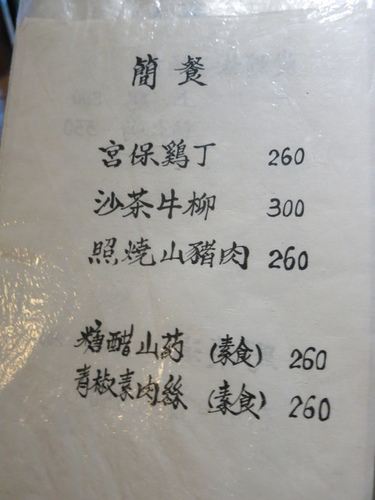 簡餐
宮保鷄丁 260
沙茶牛柳 300
照燒山豬肉 260
糖醋山药 (素食) 260
青椒素肉絲 (素食) 260